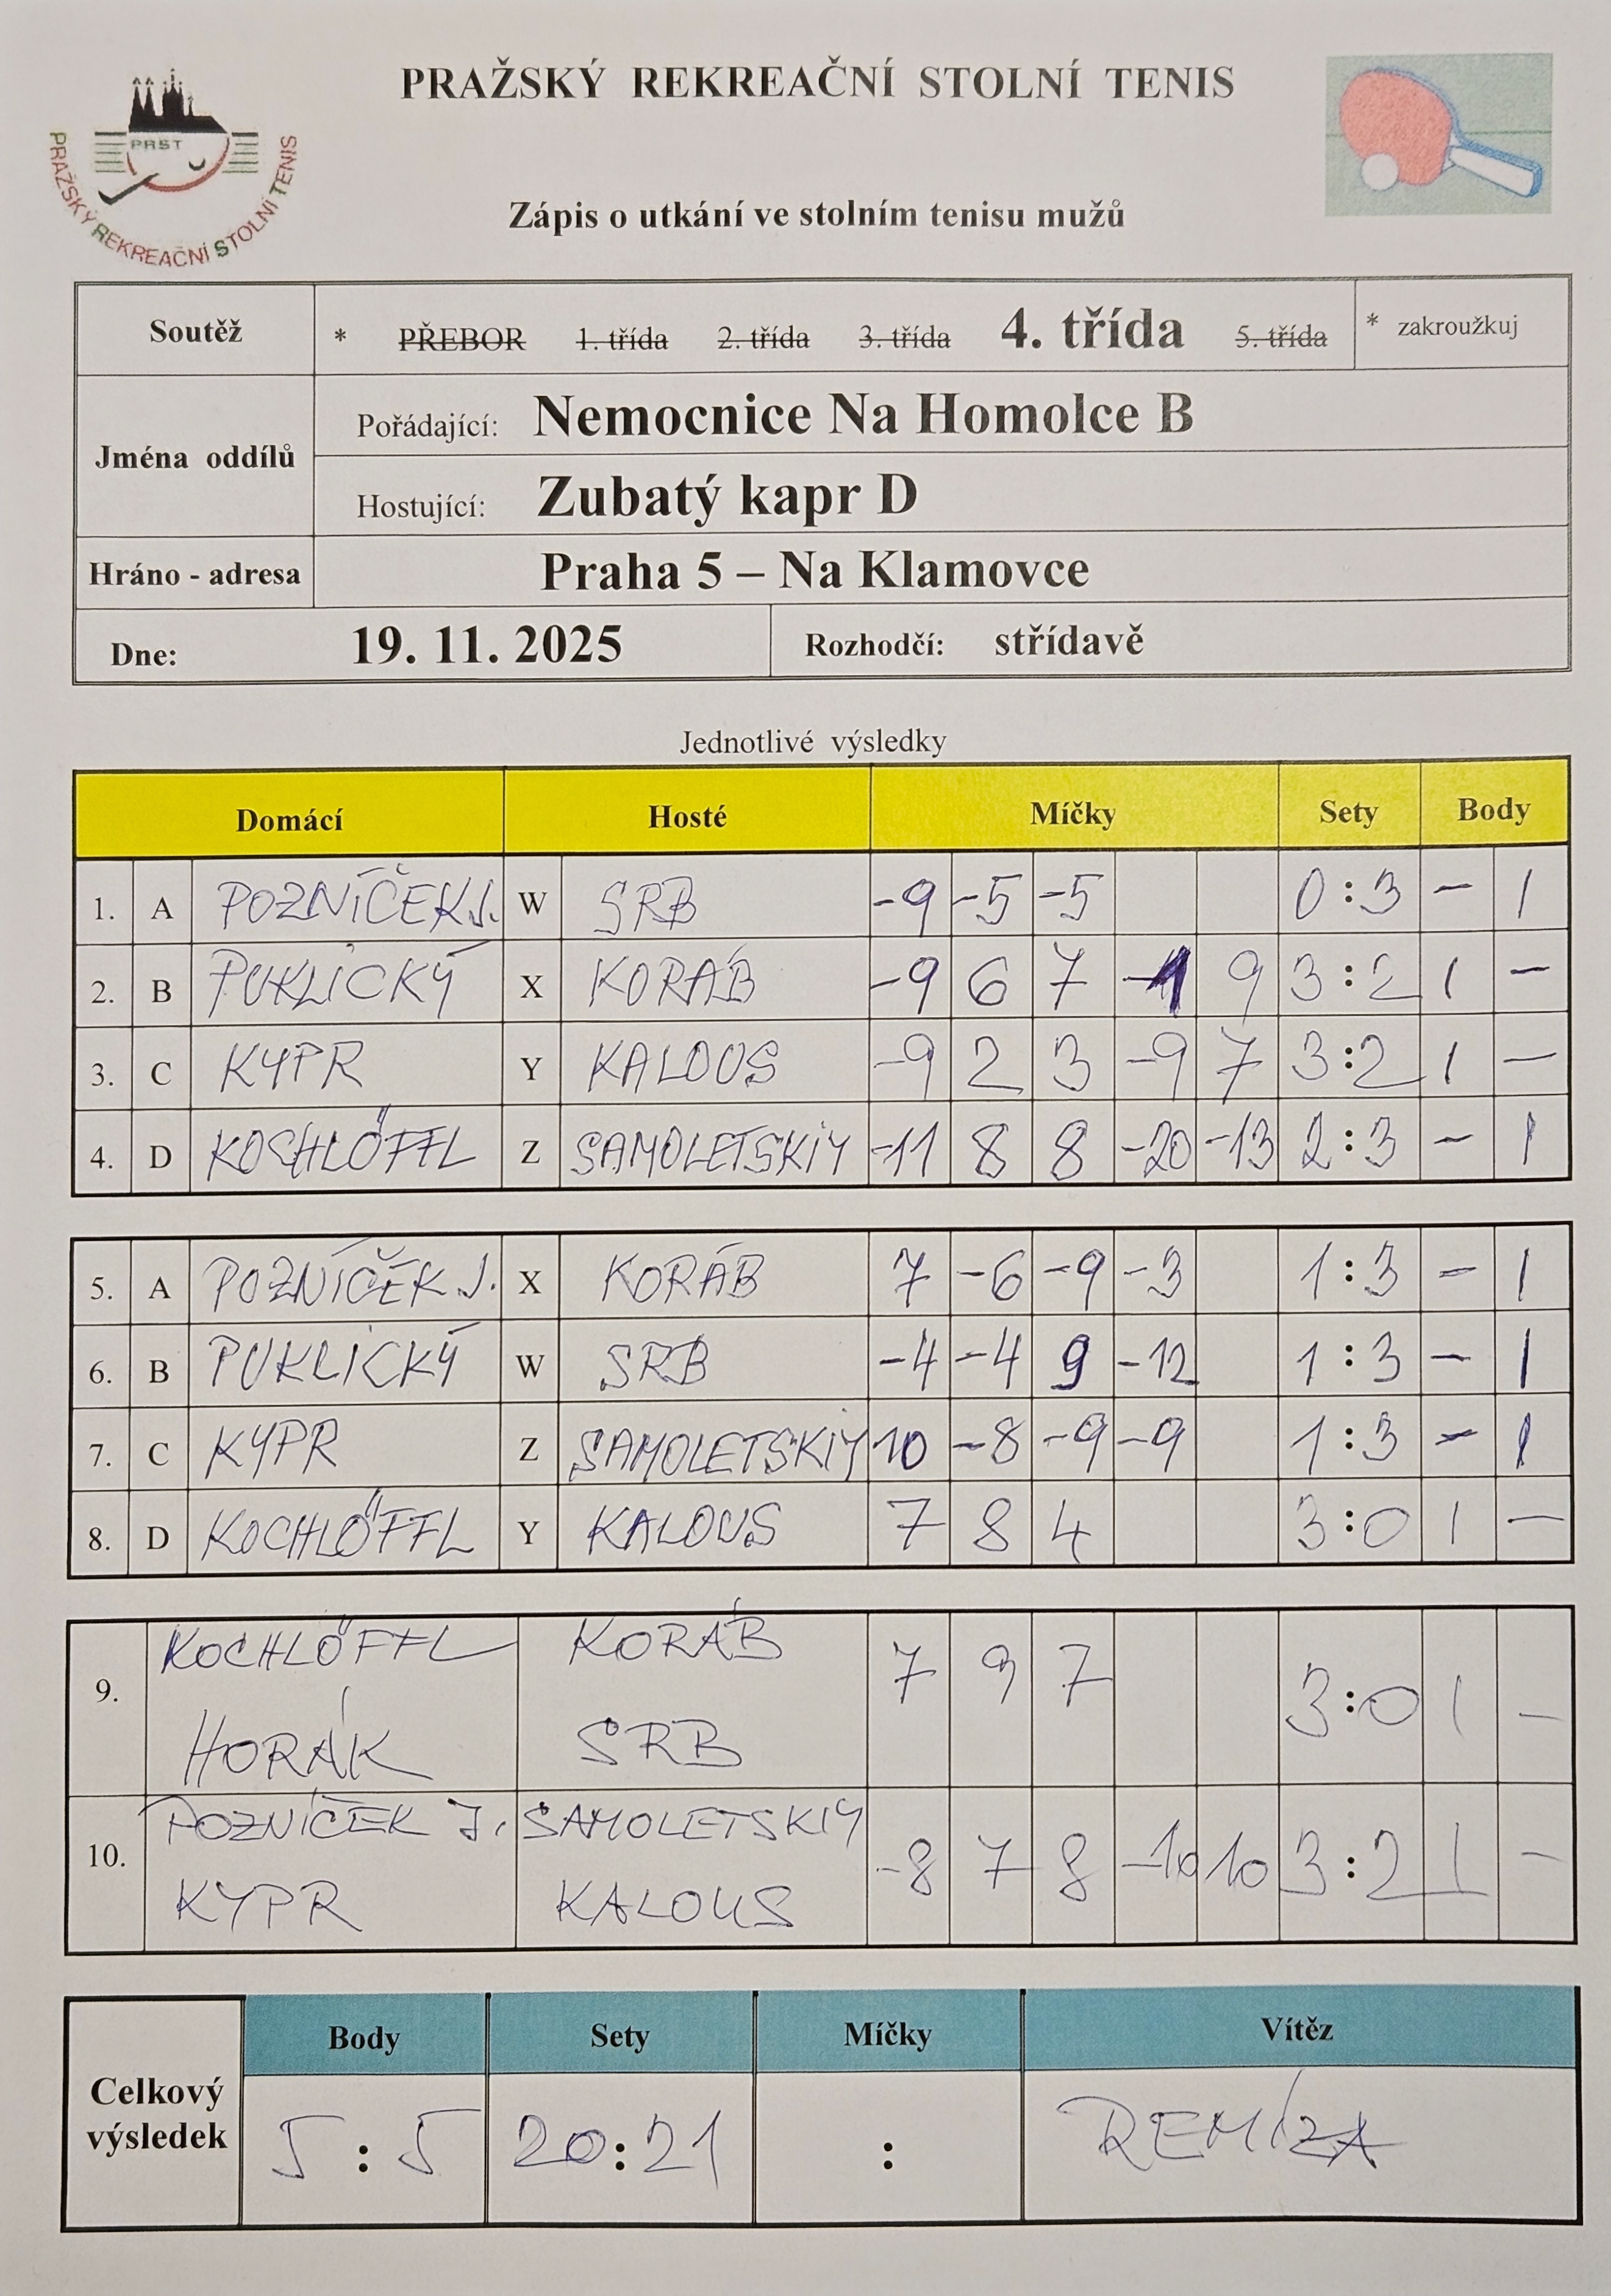 PRAŽSKÝ REKREAČNÍ STOLNÍ TENIS
PRST
PRAŽSKÝ REKREAČNÍ STOLNÍ TENIS
Zápis o utkání ve stolním tenisu mužů
Soutěž * PŘEBOR 1. třída 2. třída 3. třída 4. třída 5. třída * zakroužkuj
Jména oddílů
Pořádající: Nemocnice Na Homolce B
Hostující: Zubatý kapr D
Hráno - adresa Praha 5 – Na Klamovce
Dne: 19. 11. 2025 Rozhodčí: střídavě
Jednotlivé výsledky
Domácí Hosté Míčky Sety Body
1. A POZNÍČEK J. W SRB -9 -5 -5 0:3 - 1
2. B PUKLICKÝ X KORÁB -9 6 7 9 3:2 1 -
3. C KYPR Y KALOUS -9 2 3 -9 7 3:2 1 -
4. D KOCHLÖFFL Z SAMOLETSKIY -11 8 8 -20 -13 2:3 - 1
5. A POZNÍČEK J. X KORÁB 7 -6 -9 -3 1:3 - 1
6. B PUKLICKÝ W SRB -4 -4 9 -12 1:3 - 1
7. C KYPR Z SAMOLETSKIY 10 -8 -9 -9 1:3 - 1
8. D KOCHLÖFFL Y KALOUS 7 8 4 3:0 1 -
KOCHLÖFFL KORÁB
9. 7 9 7 3:0 1 -
HORÁK SRB
POZNÍČEK J. SAMOLETSKIY
10. -8 7 8 -10 10 3:2 1 -
KYPR KALOUS
Body Sety Míčky Vítěz
Celkový
výsledek
5 : 5 20:21 : REMÍZA